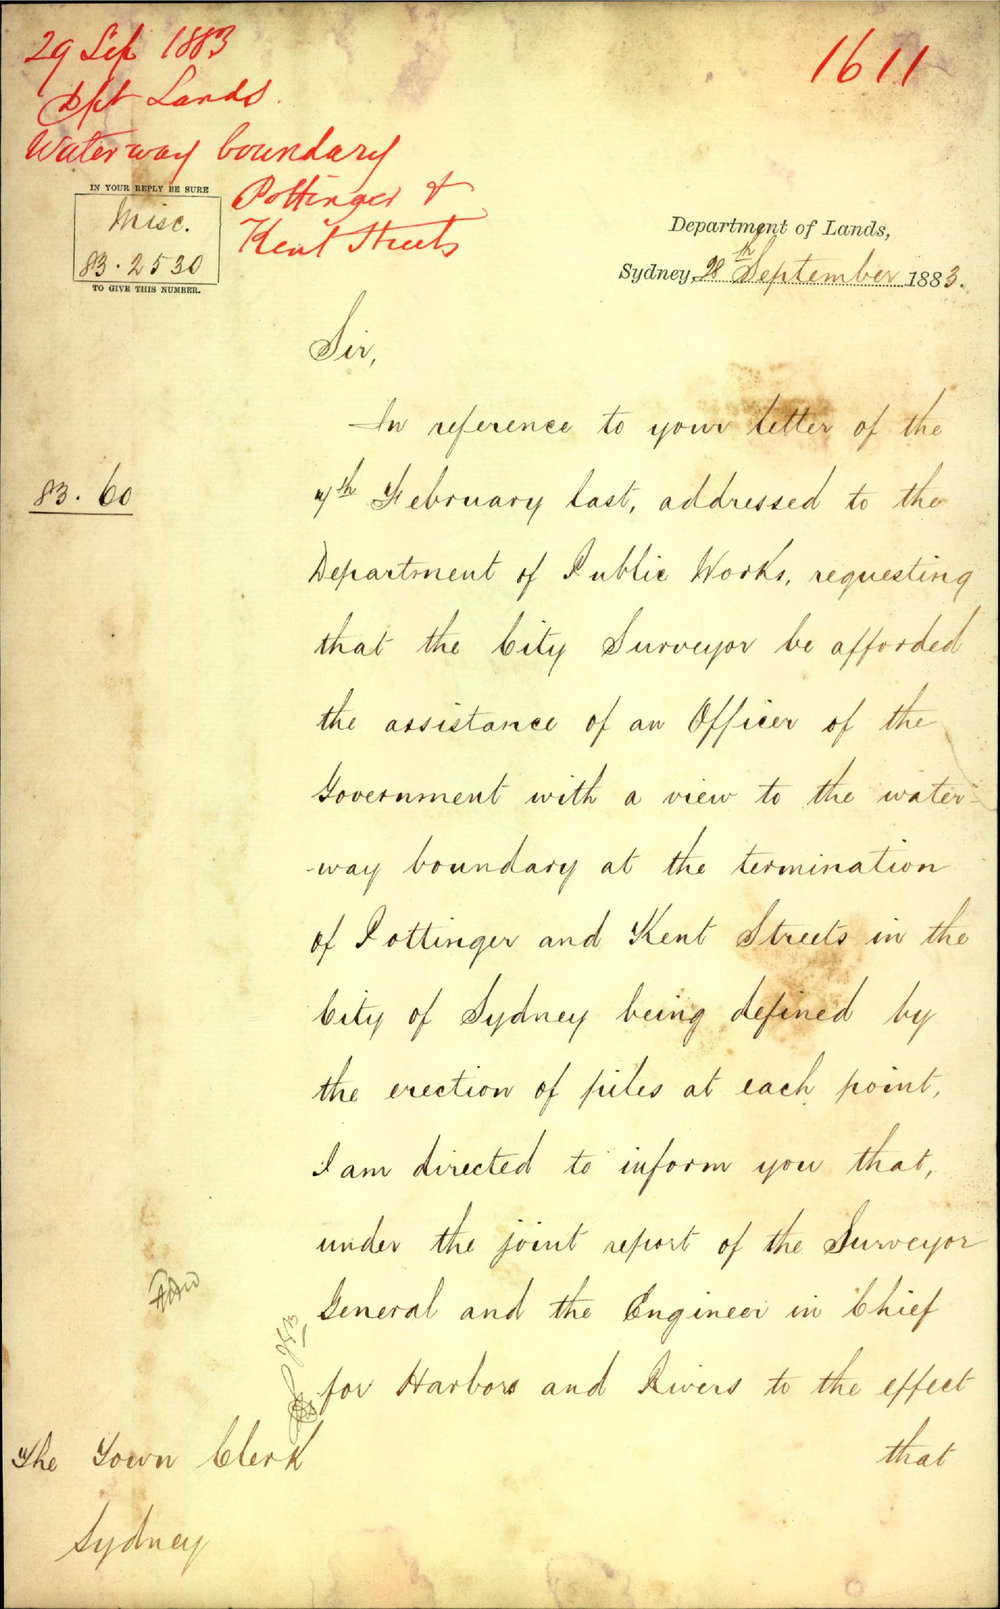 29 Sep 1883
Dept Lands.
Waterway boundary
Pottinger &
Kent Streets
1611
IN YOUR REPLY BE SURE
Misc.
83.2530
TO GIVE THIS NUMBER.
Department of Lands,
Sydney, 28th September 1883.
Sir,
In reference to your letter of the
83.60
7th February last, addressed to the
Department of Public Works, requesting
that the City Surveyor be afforded
the assistance of an Officer of the
Government with a view to the water-
-way boundary at the termination
of Pottinger and Kent Streets in the
City of Sydney being defined by
the erection of piles at each point,
I am directed to inform you that,
under the joint report of the Surveyor
General and the Engineer in Chief
for Harbors and Rivers to the effect
that
The Town Clerk
Sydney